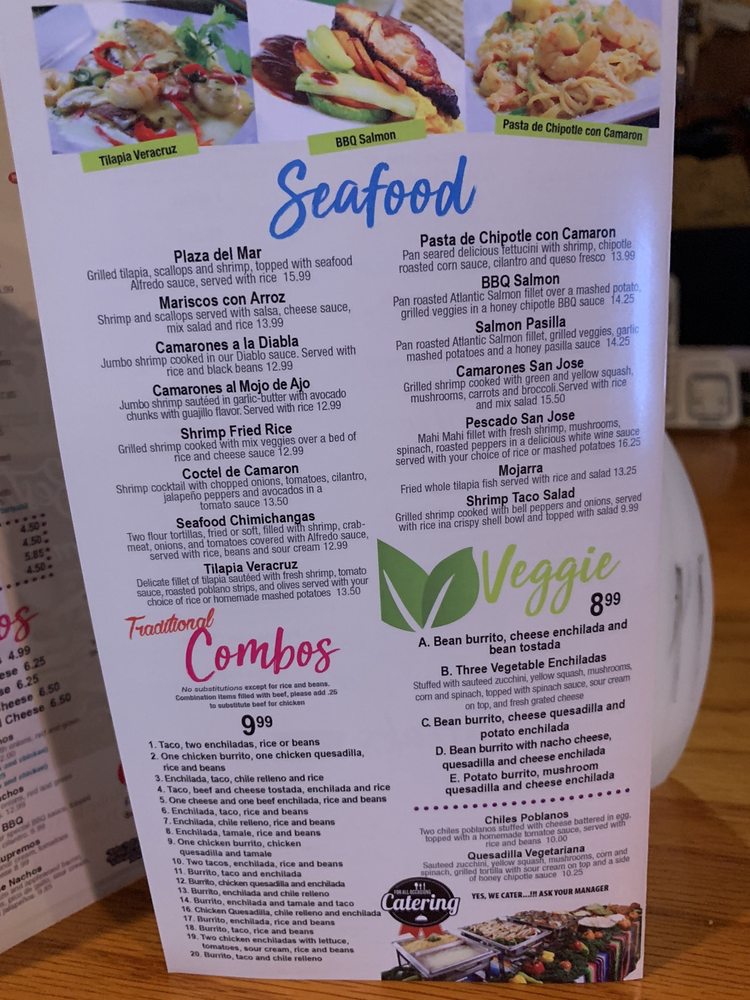 Tilapia Veracruz
BBQ Salmon
Pasta de Chipotle con Camaron
Seafood
Plaza del Mar
Grilled tilapia, scallops and shrimp, topped with seafood
Alfredo sauce, served with rice 15.99
Mariscos con Arroz
Shrimp and scallops served with salsa, cheese sauce,
mix salad and rice 13.99
Camarones a la Diabla
Jumbo shrimp cooked in our Diablo sauce. Served with
rice and black beans 12.99
Camarones al Mojo de Ajo
Jumbo shrimp sautéed in garlic-butter with avocado
chunks with guajillo flavor. Served with rice 12.99
Shrimp Fried Rice
Grilled shrimp cooked with mix veggies over a bed of
rice and cheese sauce 12.99
Coctel de Camaron
Shrimp cocktail with chopped onions, tomatoes, cilantro,
jalapeño peppers and avocados in a
tomato sauce 13.50
Seafood Chimichangas
Two flour tortillas, fried or soft, filled with shrimp, crab-
meat, onions, and tomatoes covered with Alfredo sauce,
served with rice, beans and sour cream 12.99
Tilapia Veracruz
Delicate fillet of tilapia sautéed with fresh shrimp, tomato
sauce, roasted poblano strips, and olives served with your
choice of rice or homemade mashed potatoes 13.50
Pasta de Chipotle con Camaron
Pan seared delicious fettucini with shrimp, chipotle
roasted corn sauce, cilantro and queso fresco 13.99
BBQ Salmon
Pan roasted Atlantic Salmon fillet over a mashed potato,
grilled veggies in a honey chipotle BBQ sauce 14.25
Salmon Pasilla
Pan roasted Atlantic Salmon fillet, grilled veggies, garlic
mashed potatoes and a honey pasilla sauce 14.25
Camarones San Jose
Grilled shrimp cooked with green and yellow squash,
mushrooms, carrots and broccoli.Served with rice
and mix salad 15.50
Pescado San Jose
Mahi Mahi fillet with fresh shrimp, mushrooms,
spinach, roasted peppers in a delicious white wine sauce
served with your choice of rice or mashed potatoes 16.25
Mojarra
Fried whole tilapia fish served with rice and salad 13.25
Shrimp Taco Salad
Grilled shrimp cooked with bell peppers and onions, served
with rice ina crispy shell bowl and topped with salad 9.99
Traditional
Combos
No substitutions except for rice and beans.
Combination items filled with beef, please add .25
to substitute beef for chicken
9.99
1. Taco, two enchiladas, rice or beans
2. One chicken burrito, one chicken quesadilla,
rice and beans
3. Enchilada, taco, chile relleno and rice
4. Taco, beef and cheese tostada, enchilada and rice
5. One cheese and one beef enchilada, rice and beans
6. Enchilada, taco, rice and beans
7. Enchilada, chile relleno, rice and beans
8. Enchilada, tamale, rice and beans
9. One chicken burrito, chicken
quesadilla and tamale
10. Two tacos, enchilada, rice and beans
11. Burrito, taco and enchilada
12. Burrito, chicken quesadilla and enchilada
13. Burrito, enchilada and chile relleno
14. Burrito, enchilada and tamale and taco
16. Chicken Quesadilla, chile relleno and enchilada
17. Burrito, enchilada, rice and beans
18. Burrito, taco, rice and beans
19. Two chicken enchiladas with lettuce,
tomatoes, sour cream, rice and beans
20. Burrito, taco and chile relleno
Veggie
8.99
A. Bean burrito, cheese enchilada and
bean tostada
B. Three Vegetable Enchiladas
Stuffed with sauteed zucchini, yellow squash, mushrooms,
corn and spinach, topped with spinach sauce, sour cream
on top, and fresh grated cheese
C. Bean burrito, cheese quesadilla and
potato enchilada
D. Bean burrito with nacho cheese,
quesadilla and cheese enchilada
E. Potato burrito, mushroom
quesadilla and cheese enchilada
Chiles Poblanos
Two chiles poblanos stuffed with cheese battered in egg,
topped with a homemade tomatoe sauce, served with
rice and beans 10.00
Quesadilla Vegetariana
Sauteed zucchini, yellow squash, mushrooms, corn and
spinach, grilled tortilla with sour cream on top and a side
of honey chipotle sauce 10.25
FOR ALL OCCASIONS
Catering
YES, WE CATER...!!! ASK YOUR MANAGER
4.50
4.50
5.85
4.50
os
4.99
ese 6.25
se 6.25
d Cheese 6.50
Cheese 6.50
BBQ
upremos
e Nachos